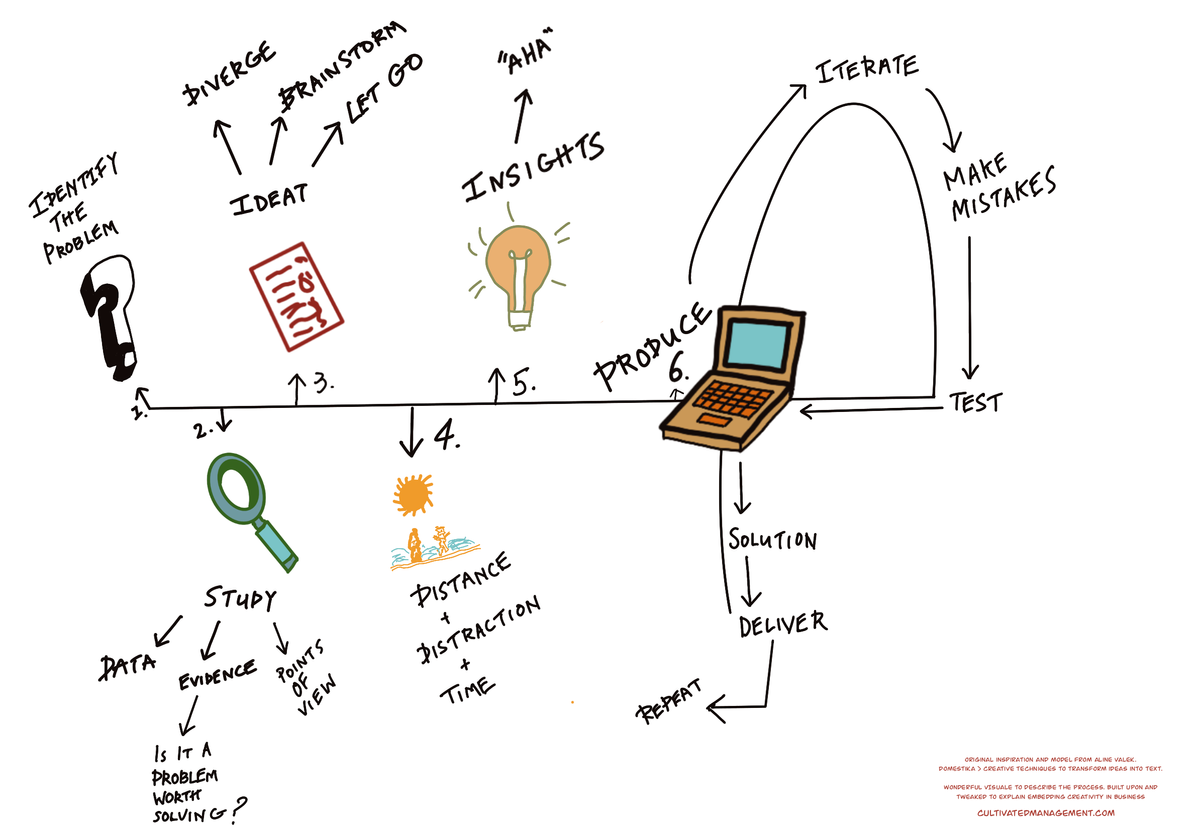 IDENTIFY
THE
PROBLEM
1.
2.
STUDY
DATA
EVIDENCE
POINTS
OF
VIEW
IS IT A
PROBLEM
WORTH
SOLVING?
3.
IDEAT
DIVERGE
BRAINSTORM
LET GO
4.
DISTANCE
+
DISTRACTION
+
TIME
5.
INSIGHTS
"AHA"
PRODUCE
6.
ITERATE
MAKE
MISTAKES
TEST
SOLUTION
DELIVER
REPEAT
ORIGINAL INSPIRATION AND MODEL FROM ALINE VALEK.
DOMESTIKA > CREATIVE TECHNIQUES TO TRANSFORM IDEAS INTO TEXT.
WONDERFUL VISUALE TO DESCRIBE THE PROCESS. BUILT UPON AND
TWEAKED TO EXPLAIN EMBEDDING CREATIVITY IN BUSINESS
CULTIVATEDMANAGEMENT.COM